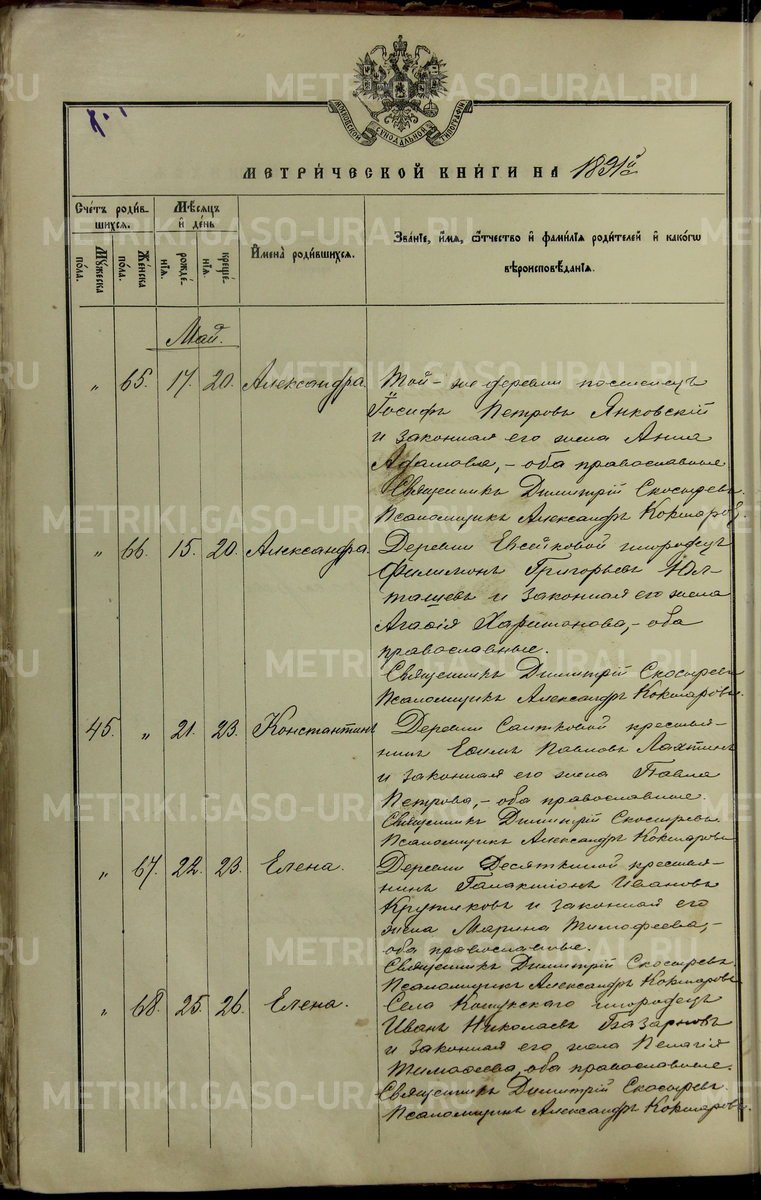 METRIKI.GASO-URAL.RU
МОСКОВСКОЙ СѴНОДАЛЬНОЙ ТИПОГРАФІИ
МЕТРИ́ЧЕСКОЙ КНИ́ГИ НА 1891й
Сче́тъ роди́вшихся.
Мѣ́сяцъ и́ де́нь
Имена̀ роди́вшихся.
Зва́нїе, и́мя, ѻ҆́тчество и҆ фами́лїя роди́телей и҆ како́гѡ вѣроисповѣ́данїя.
Му́жеска по́ла.
Же́нска по́ла.
рожде́нїя.
креще́нїя.
Май.
" 65. 17. 20. Александра. Той-же деревни поселенецъ
Іосифъ Петровъ Янковскій
и законная его жена Анна
Адамовна,- оба православные
Священникъ Димитрій Скосыревъ.
Псаломщикъ Александръ Кокшаровъ.
" 66. 15. 20. Александра. Деревни Евсейковой инородецъ
Филимонъ Григорьевъ Юл-
ташевъ и законная его жена
Агафія Харитонова,- оба
православные.
Священникъ Димитрій Скосыревъ
Псаломщикъ Александръ Кокшаровъ.
45. " 21. 23. Константинъ Деревни Саитковой крестья-
нинъ Ефимъ Павловъ Лахтинъ
и законная его жена Павла
Петрова,- оба православные.
Священникъ Димитрій Скосыревъ.
Псаломщикъ Александръ Кокшаровъ
" 67. 22. 23. Елена. Деревни крестья-
нинъ Галактіонъ Ивановъ
Крутиковъ и законная его
жена Марина Тимофеева,-
оба православные.
Священникъ Димитрій Скосыревъ.
Псаломщикъ Александръ Кокшаровъ
" 68. 25. 26. Елена. Села Кошукскаго инородецъ
Иванъ Николаевъ Базарновъ
и законная его жена Пелагія
Тимофеева, оба православные.
Священникъ Димитрій Скосыревъ.
Псаломщикъ Александръ Кокшаровъ.